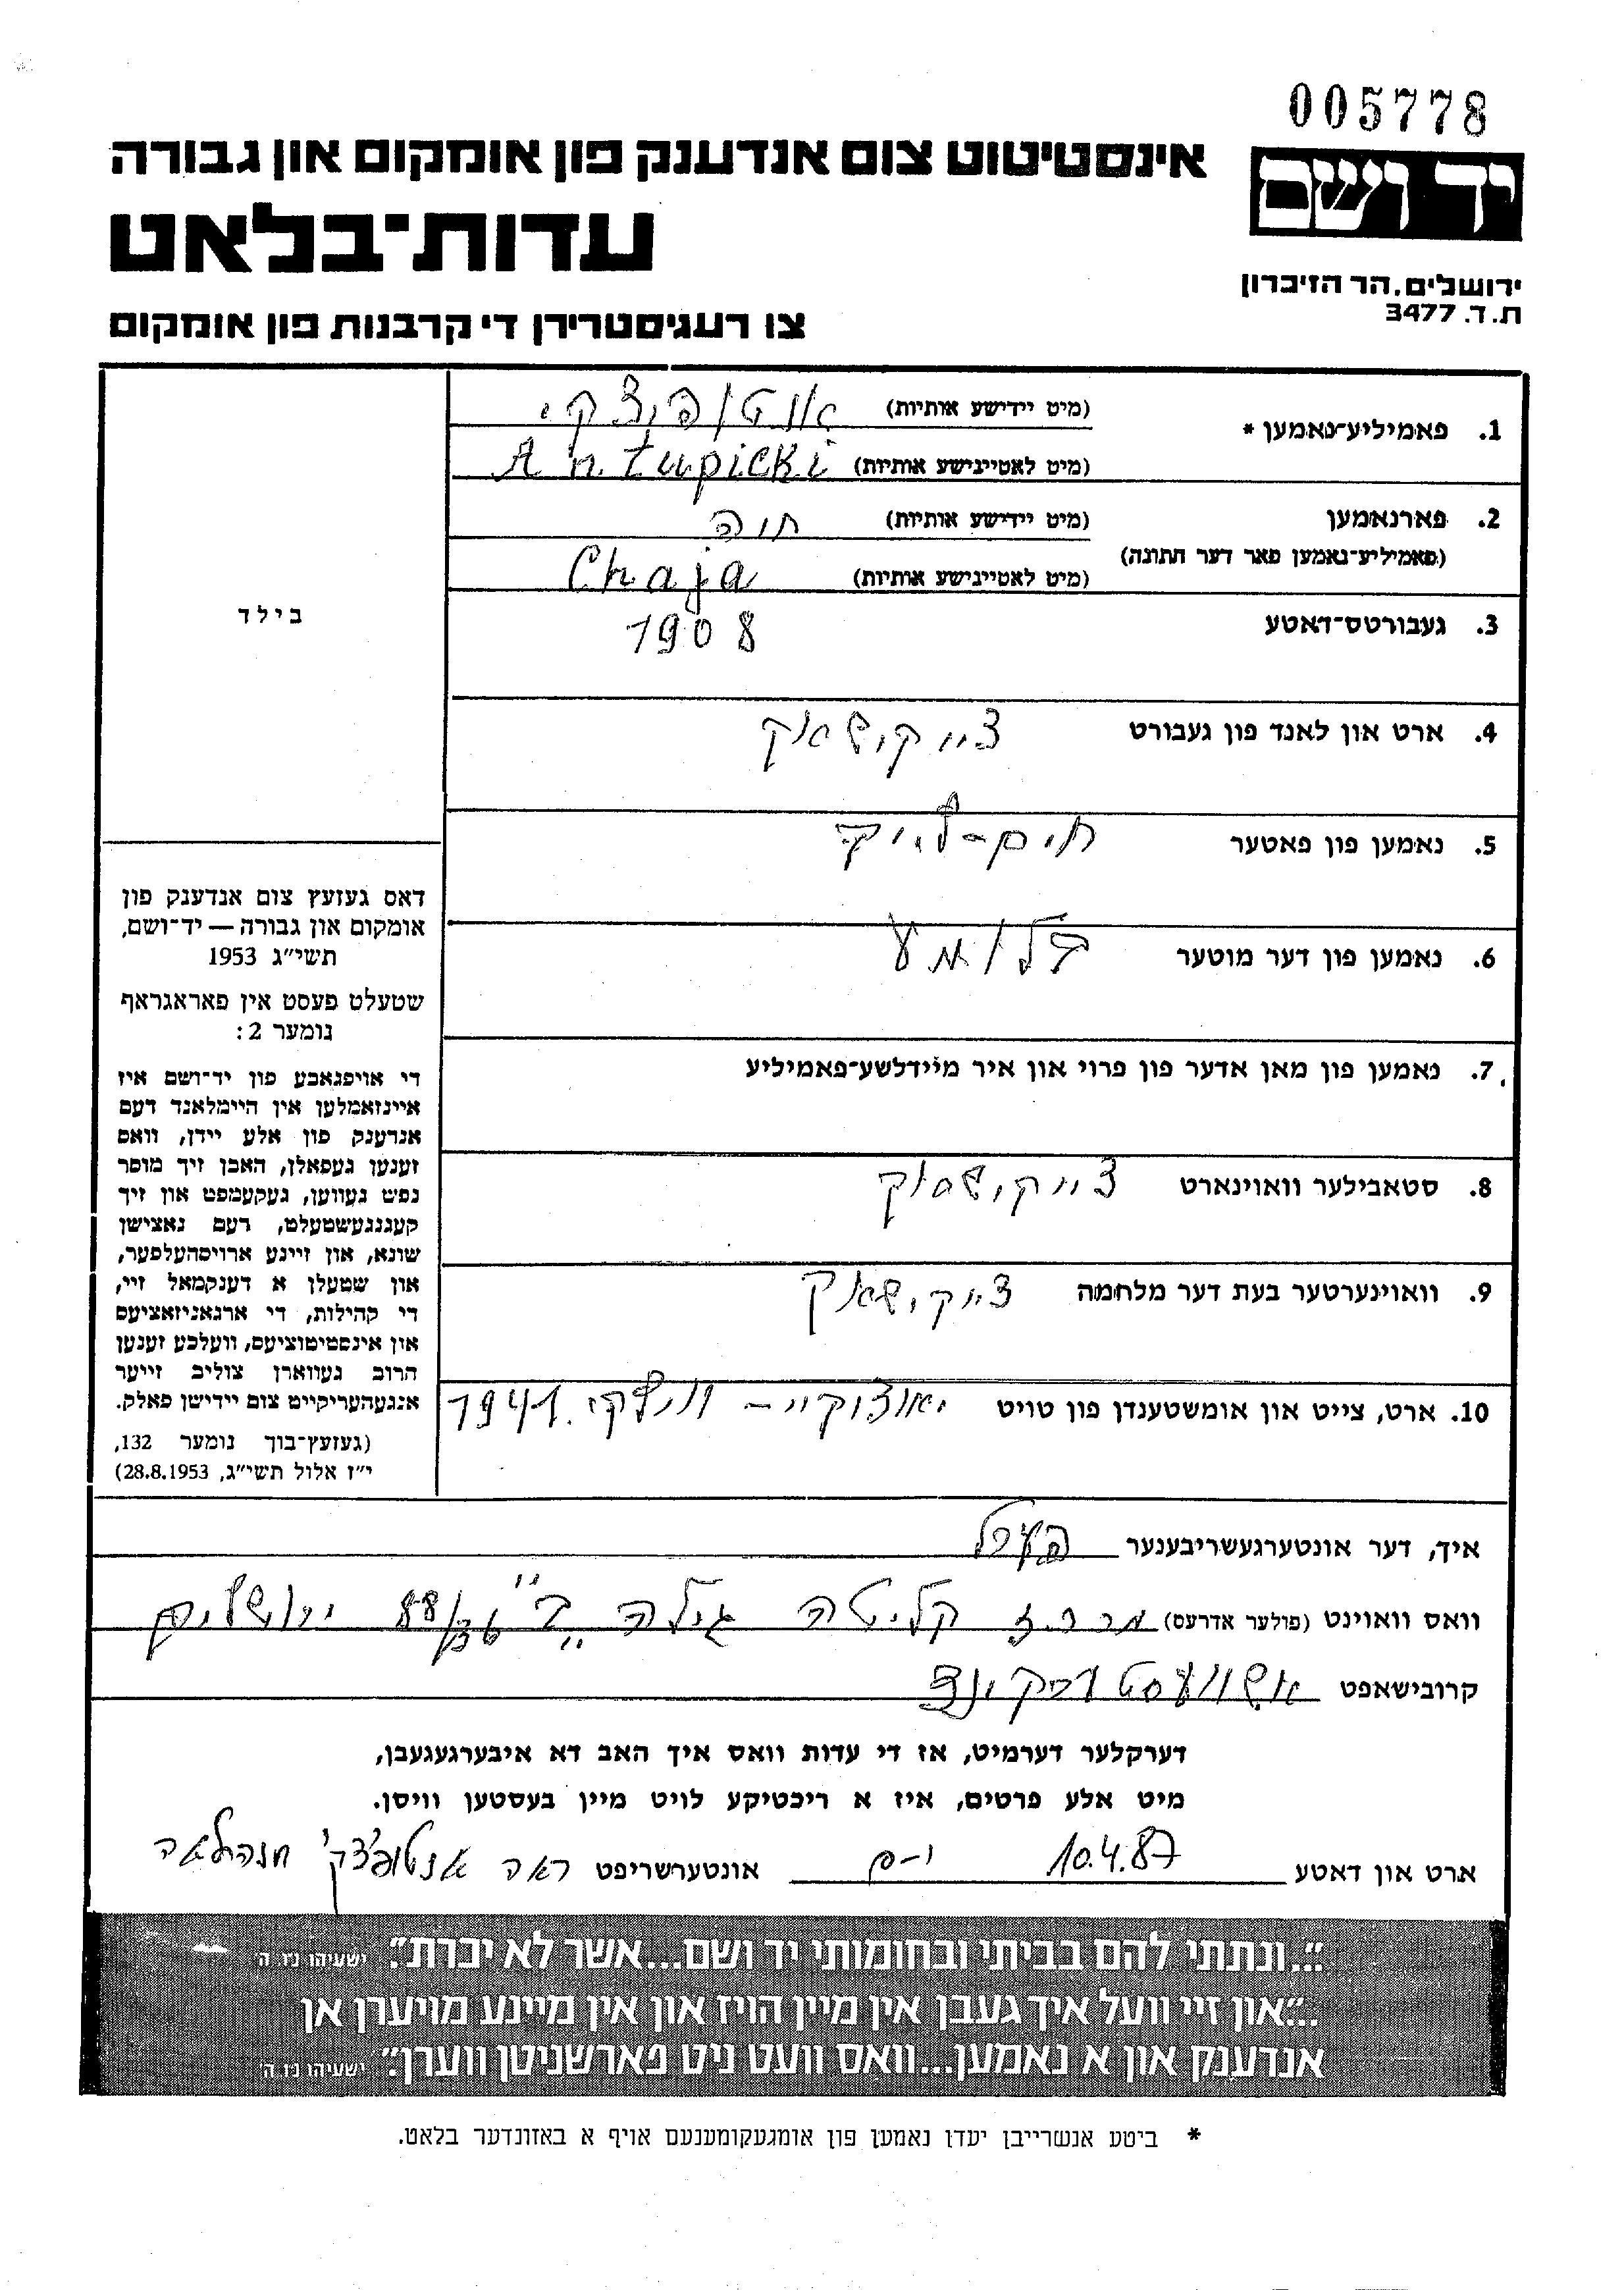 005778
יד ושם
ירושלים. הר הזיכרון
ת.ד. 3477
אינסטיטוט צום אנדענק פון אומקום און גבורה
עדות־בלאט
צו רעגיסטרירן די קרבנות פון אומקום
1. פאמיליע־נאמען *
(מיט יידישע אותיות) אנטופיצקי
(מיט לאטייניшע אותיות) Antupicki
2. פארנאמען
(פאמיליע־נאמען פאר דער חתונה)
(מיט יידישע אותיות) חיה
(מיט לאטיינישע אותיות) Chaja
3. געבורטס־דאטע 1908
4. ארט און לאנד פון געבורט
5. נאמען פון פאטער
6. נאמען פון דער מוטער בלומע
7. נאמען פון מאן אדער פון פרוי און איר מיידלשע־פאמיליע
8. סטאבילער וואוינארט
9. וואוינערטער בעת דער מלחמה
10. ארט, צייט און אומשטענדן פון טויט 1941.
בילד
דאס געזעץ צום אנדענק פון
אומקום און גבורה — יד־ושם,
תשי״ג 1953
שטעלט פעסט אין פאראגראף
נומער 2:
די אויפגאבע פון יד־ושם איז
איינזאמלען אין היימלאנד דעם
אנדענק פון אלע יידן, וואס
זענען געפאלן, האבן זיך מוסר
נפש געווען, געקעמפט און זיך
קעגנגעשטעלט, דעם נאצישן
שונא, און זיינע ארויסהעלפער,
און שטעלן א דענקמאל זיי,
די קהילות, די ארגאניזאציעס
און אינסטיטוציעס, וועלכע זענען
חרוב געווארן צוליב זייער
אנגעהעריקייט צום יידישן פאלק.
(געזעץ־בוך נומער 132,
י״ז אלול תשי״ג, 28.8.1953)
איך, דער אונטערגעשריבענער
וואס וואוינט (פולער אדרעס) מרכז קליטה גילה ירושלים
קרובישאפט
דערקלער דערמיט, אז די עדות וואס איך האב דא איבערגעגעבן,
מיט אלע פרטים, איז א ריכטיקע לויט מיין בעסטען וויסן.
ארט און דאטע 10.4.87 י-ם אונטערשריפט
״...ונתתי להם בביתי ובחומותי יד ושם...אשר לא יכרת״. ישעיהו נ״ו ה׳
...״און זיי וועל איך געבן אין מיין הויז און אין מיינע מויערן אן
אנדענק און א נאמען...וואס וועט ניט פארשניטן ווערן״. ישעיהו נ״ו ה׳
* ביטע אנשרייבן יעדן נאמען פון אומגעקומענעם אויף א באזונדער בלאט.